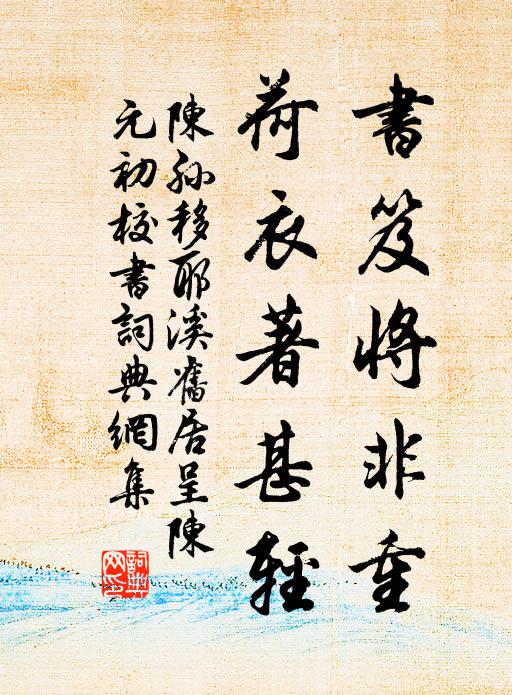 書笈將非重
荷衣著甚輕
陳孫移耶溪舊居呈陳
元初校書詞典網集